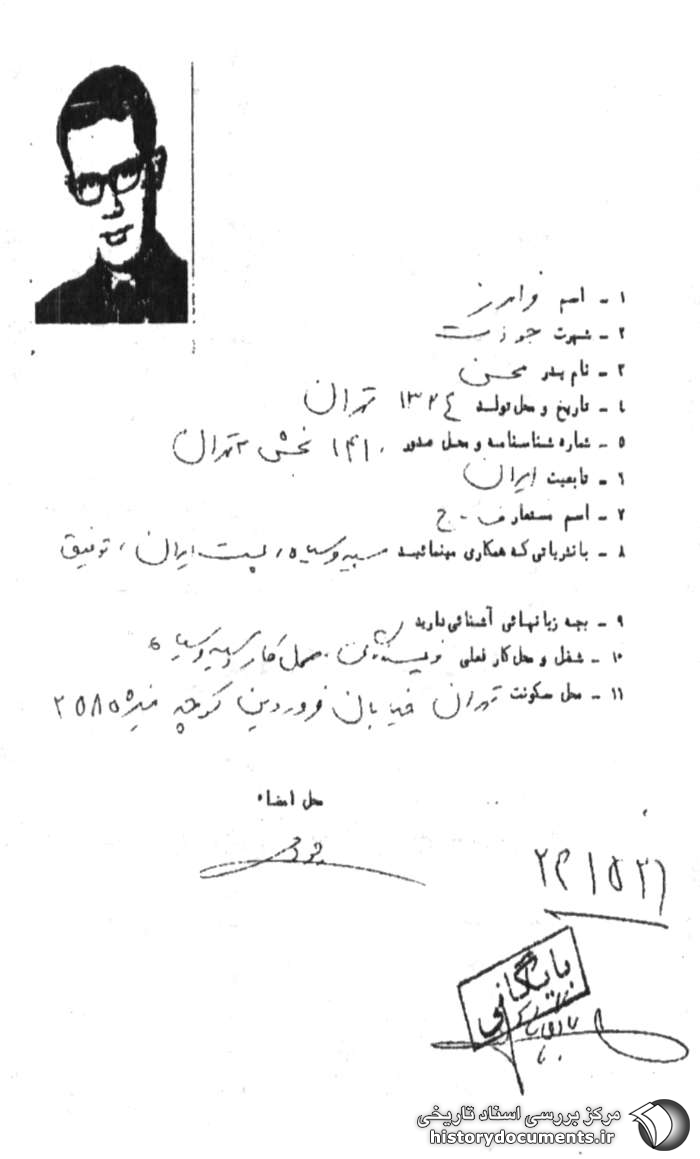 ۱ - اسم فرامرز
۲ - شهرت جودت
۳ - نام پدر محسن
٤ - تاریخ و محل تولد ۱۳۲٤ تهران
۵ - شماره شناسنامه و محل صدور ۱۴۱۰ بخش ۳ تهران
٦ - تابعیت ایران
۷ - اسم مستعار ف - ج
۸ - با نشریاتی که همکاری مینمائید سپید و سیاه، پست ایران، توفیق
۹ - بچه زبانهائی آشنائی دارید
۱۰ - شغل و محل کار فعلی نویسندگی، محل کار سپید و سیاه
۱۱ - محل سکونت تهران خیابان فروردین کوچه
محل امضاء
بایگانی
مرکز بررسی اسناد تاریخی
historydocuments.ir